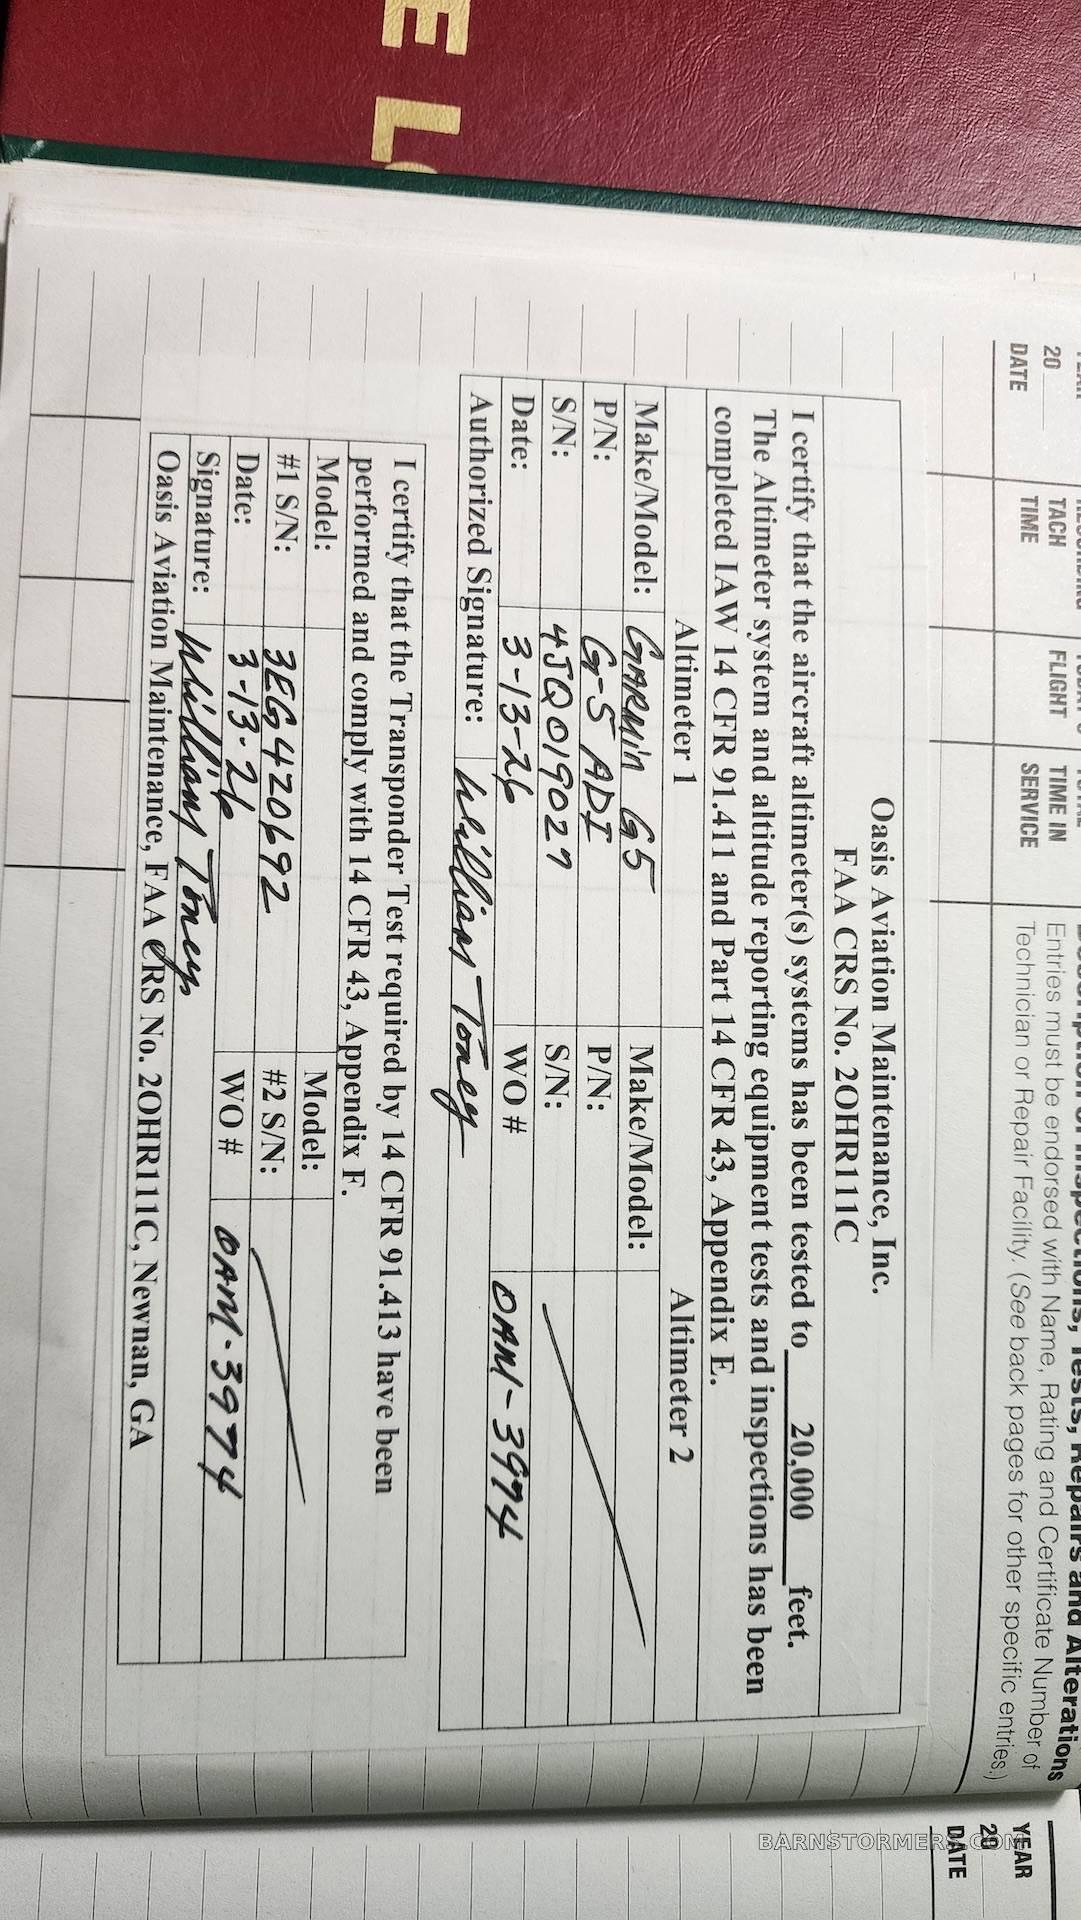 E L
YEAR
20
DATE
TACH
TIME
FLIGHT
TIME IN
SERVICE
Description of Inspections, Tests, Repairs and Alterations
Entries must be endorsed with Name, Rating and Certificate Number of
Technician or Repair Facility. (See back pages for other specific entries.)
Oasis Aviation Maintenance, Inc.
FAA CRS No. 2OHR111C
I certify that the aircraft altimeter(s) systems has been tested to 20,000 feet.
The Altimeter system and altitude reporting equipment tests and inspections has been
completed IAW 14 CFR 91.411 and Part 14 CFR 43, Appendix E.
Altimeter 1 Altimeter 2
Make/Model: GARMIN G5 Make/Model:
P/N: G-5 ADI P/N:
S/N: 4JQ019027 S/N:
Date: 3-13-26 WO # OAM-3974
Authorized Signature: William Toney
I certify that the Transponder Test required by 14 CFR 91.413 have been
performed and comply with 14 CFR 43, Appendix F.
Model: Model:
#1 S/N: 3EG420692 #2 S/N:
Date: 3-13-26 WO # OAM-3974
Signature: William Toney
Oasis Aviation Maintenance, FAA CRS No. 2OHR111C, Newnan, GA
YEAR
20
DATE
BARNSTORMERS.COM